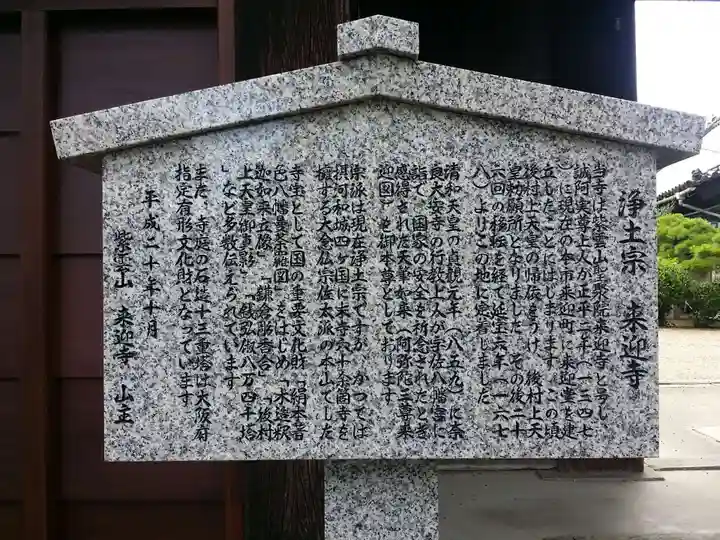 浄土宗 来迎寺
当寺は紫雲山聖聚院来迎寺と号し
誠阿実尊上人が正平二年(一三四七
)に現在の本市来迎町に来迎堂を建
立したことにはじまります この頃
後村上天皇の帰依をうけ、後村上天
皇勅願所となりました その後二十
六回の移転を経て延宝六年(一六七
八)よりこの地に定着しました
清和天皇の貞観元年(八五九)に奈
良大安寺の行教上人が宇佐八幡宮に
詣で、国家の安全を祈念されたとき
感得された天筆如来(阿弥陀三尊来
迎図)を御本尊としております
宗派は現在浄土宗ですが、かつては
摂河和城四ヶ国に末寺六十余箇寺を
擁する大念仏宗佐太派の本山でした
寺宝として国の重要文化財「絹本着
色八幡曼荼羅図」をはじめ「木造釈
迦如来立像」「鎌倉勝善合」「後村
上天皇御真影」「銭弘俶八万四千塔
」など多数伝えられています
また、寺庭の石造十三重塔は大阪府
指定有形文化財となっています
平成二十年十月
紫雲山 来迎寺 山主